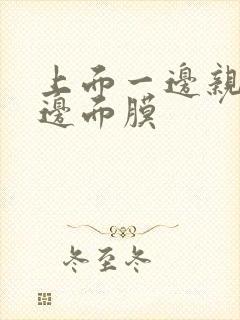 上而一邊親
邊而膜
冬至冬